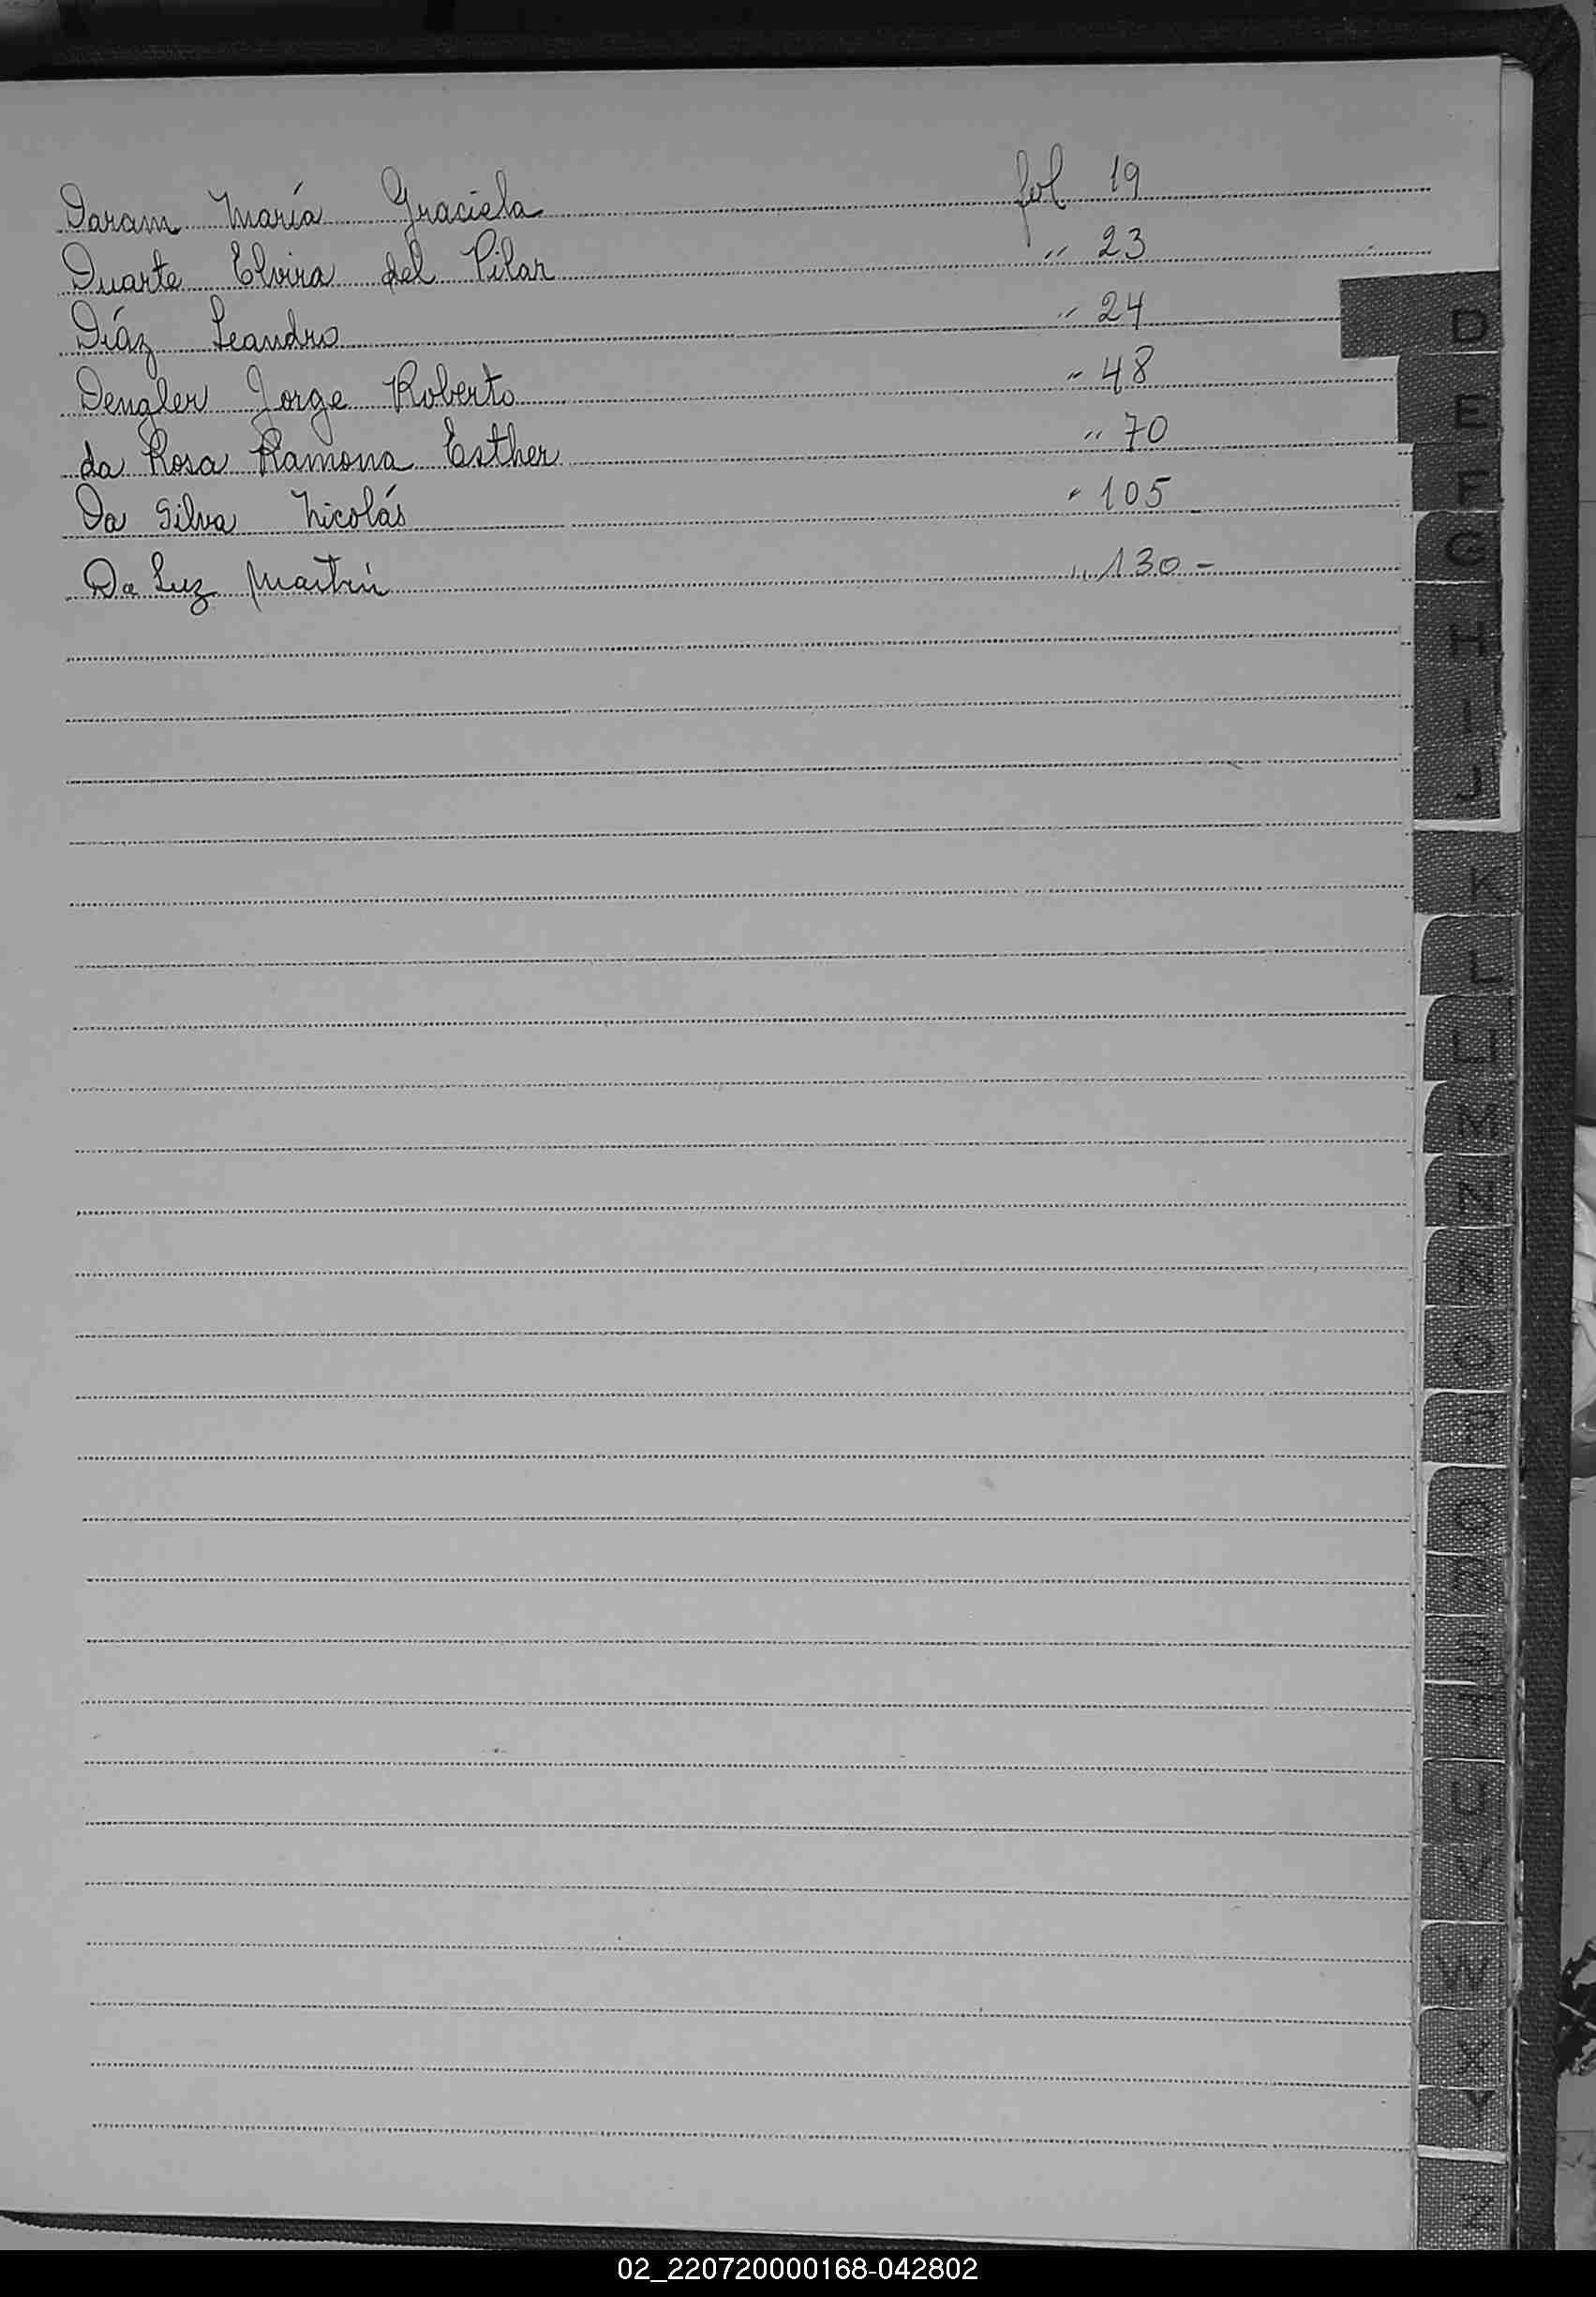 Daram María Graciela fol 19
Duarte Elvira del Pilar " 23
Díaz Leandro " 24
Dengler Jorge Roberto " 48
da Rosa Ramona Esther " 70
Da Silva Nicolás " 105
Da Luz Martín " 130 -
D
E
F
G
H
I
J
K
L
LL
M
N
Ñ
O
P
Q
R
S
T
U
V
W
X
Y
Z
02_220720000168-042802